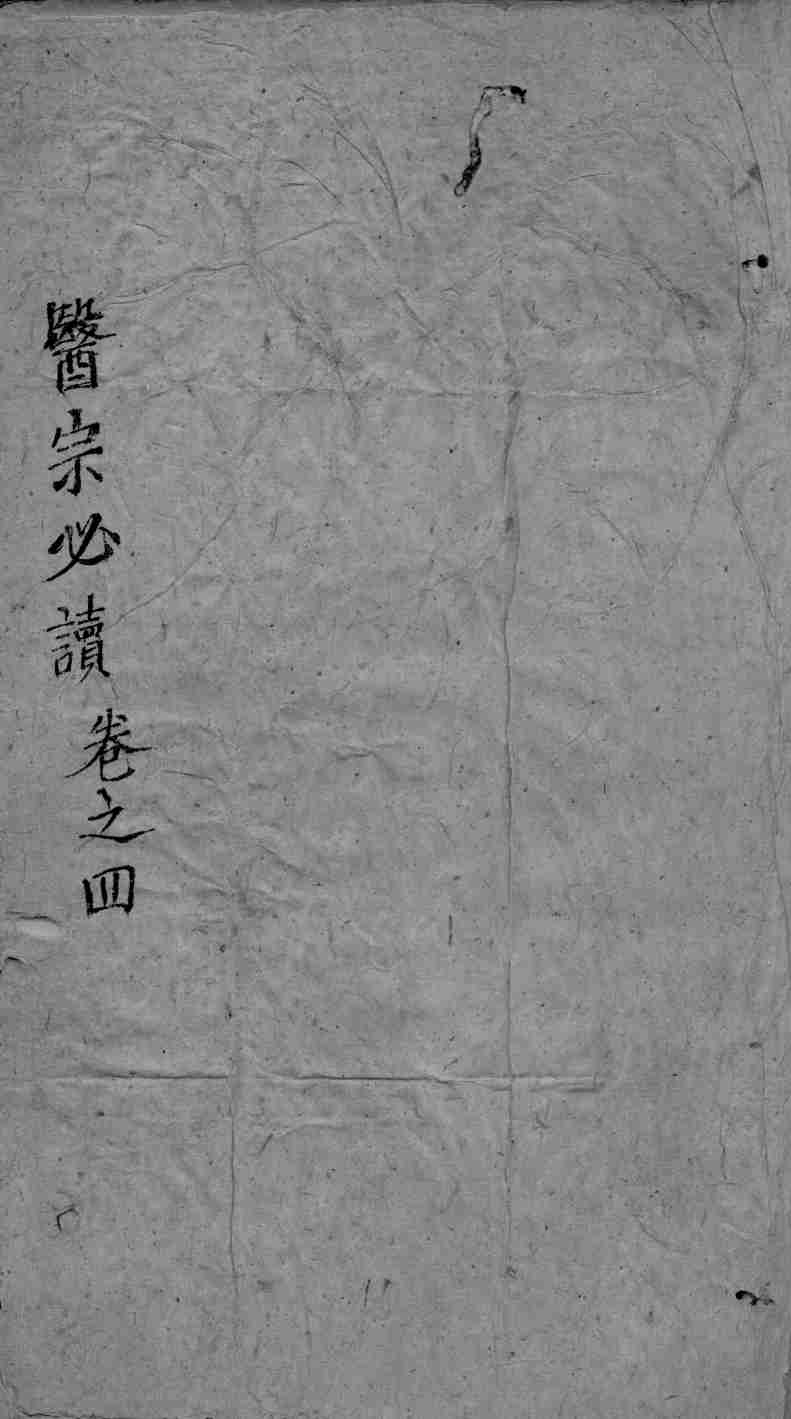 醫宗必讀 卷之四